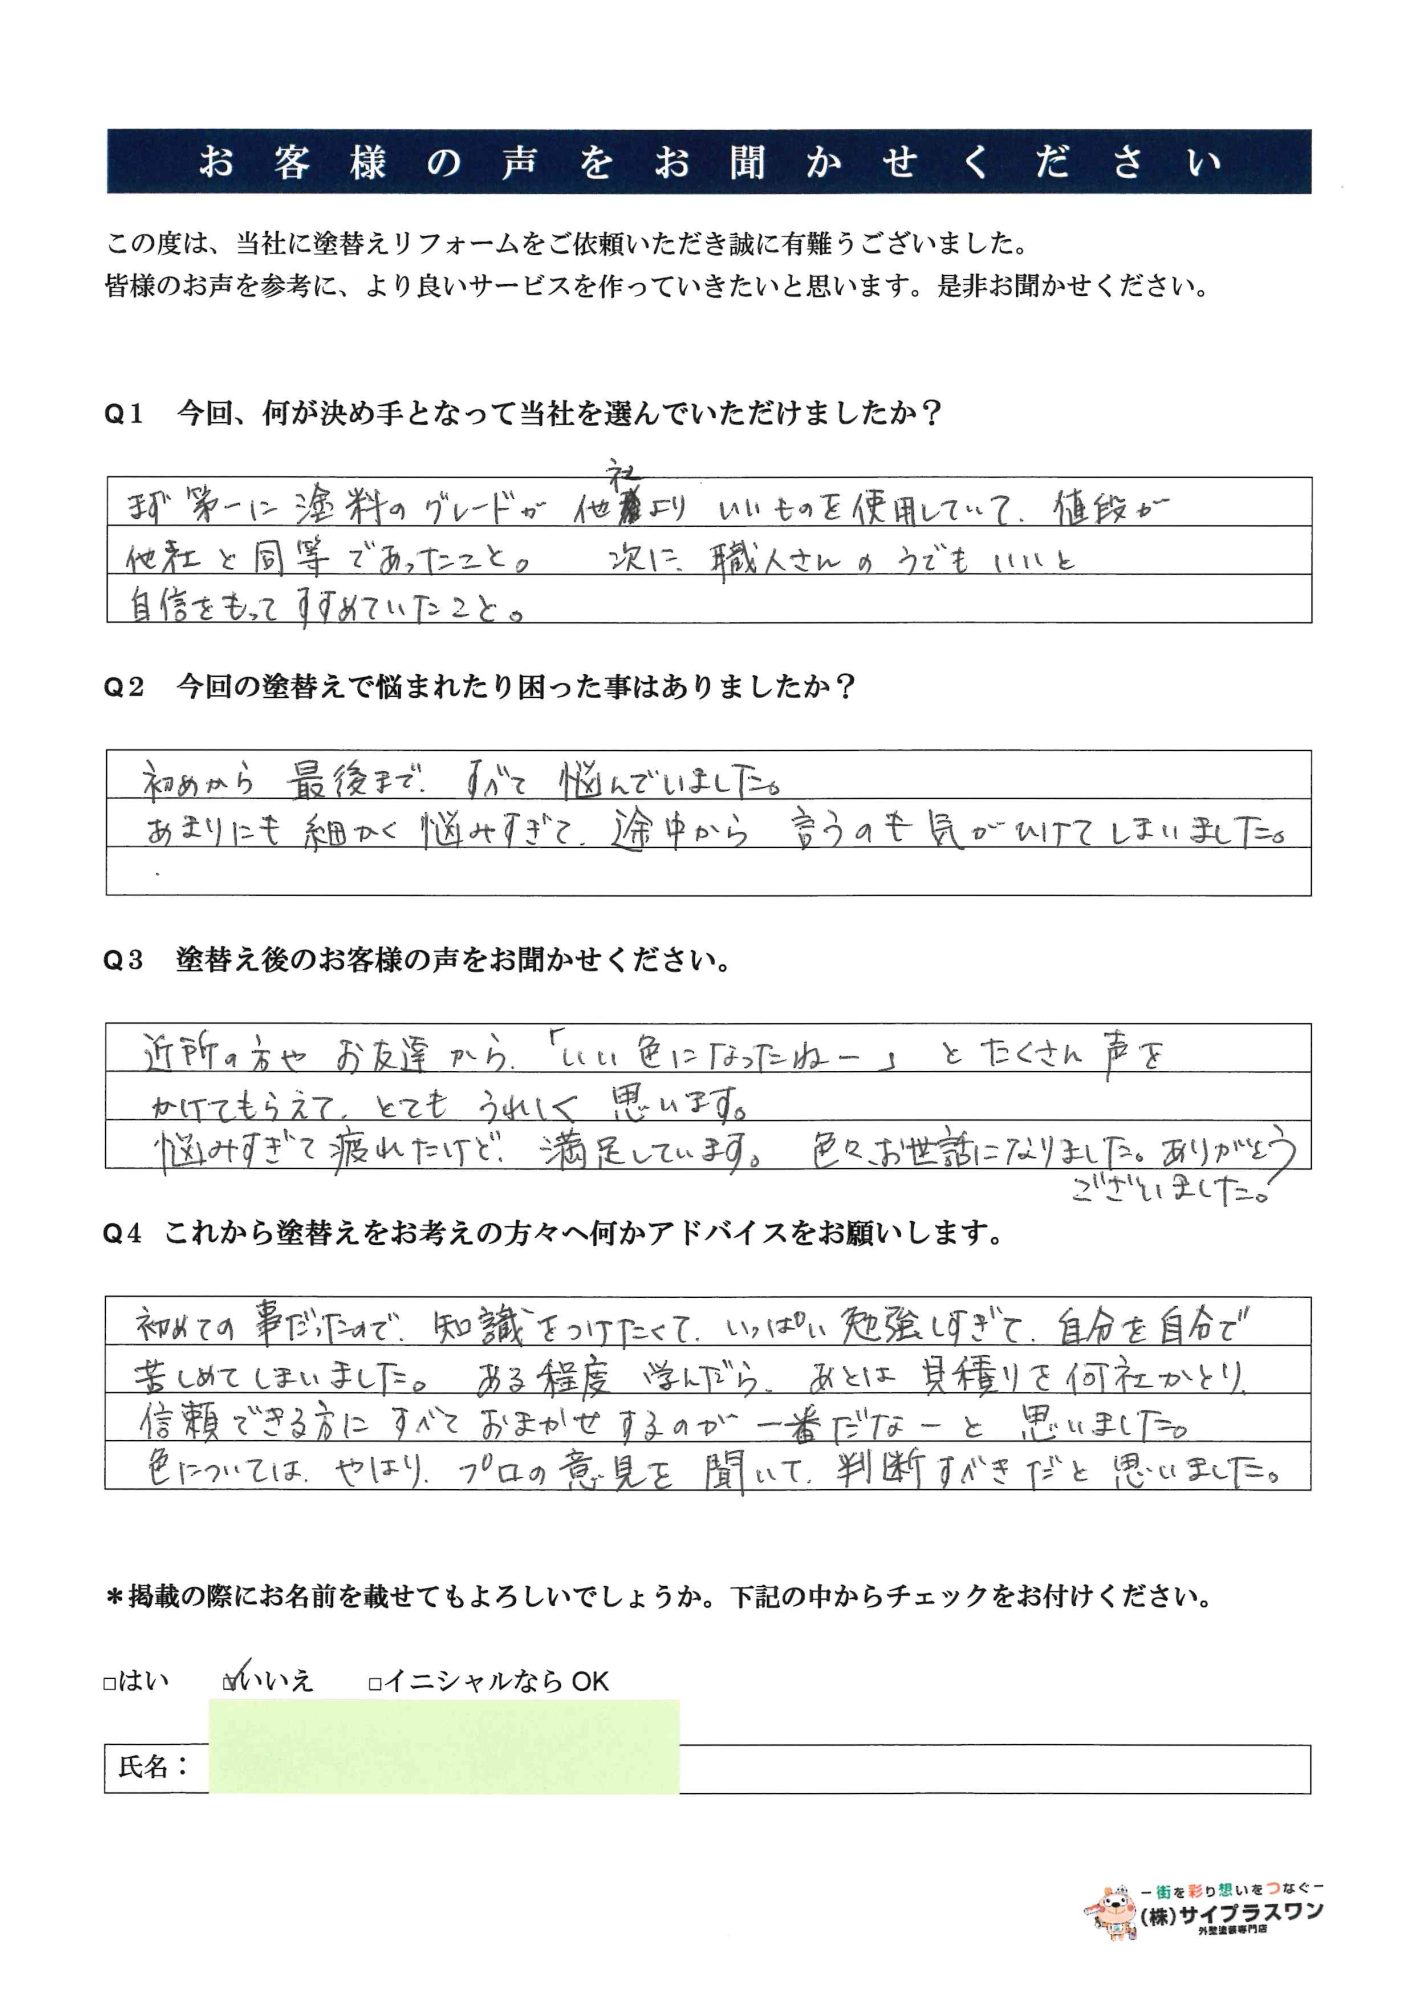 お客様の声をお聞かせください
この度は、当社に塗替えリフォームをご依頼いただき誠に有難うございました。
皆様のお声を参考に、より良いサービスを作っていきたいと思います。是非お聞かせください。
Q1 今回、何が決め手となって当社を選んでいただけましたか？
まず第一に塗料のグレードが他社よりいいものを使用していて、値段が
他社と同等であったこと。 次に、職人さんのうでもいいと
自信をもってすすめていたこと。
Q2 今回の塗替えで悩まれたり困った事はありましたか？
初めから最後まで、すべて悩んでいました。
あまりにも細かく悩みすぎて、途中から言うのも気がひけてしまいました。
Q3 塗替え後のお客様の声をお聞かせください。
近所の方やお友達から、「いい色になったねー」とたくさん声を
かけてもらえて、とてもうれしく思います。
悩みすぎて疲れたけど、満足しています。 色々、お世話になりました。ありがとう
ございました。
Q4 これから塗替えをお考えの方々へ何かアドバイスをお願いします。
初めての事だったので、知識をつけたくて、いっぱい勉強しすぎて、自分を自分で
苦しめてしまいました。 ある程度学んだら、あとは見積りを何社かとり、
信頼できる方にすべておまかせするのが一番だなーと思いました。
色については、やはり、プロの意見を聞いて、判断すべきだと思いました。
＊掲載の際にお名前を載せてもよろしいでしょうか。下記の中からチェックをお付けください。
□はい ☑いいえ □イニシャルなら OK
氏名：
－街を彩り想いをつなぐ－
(株)サイプラスワン
外壁塗装専門店